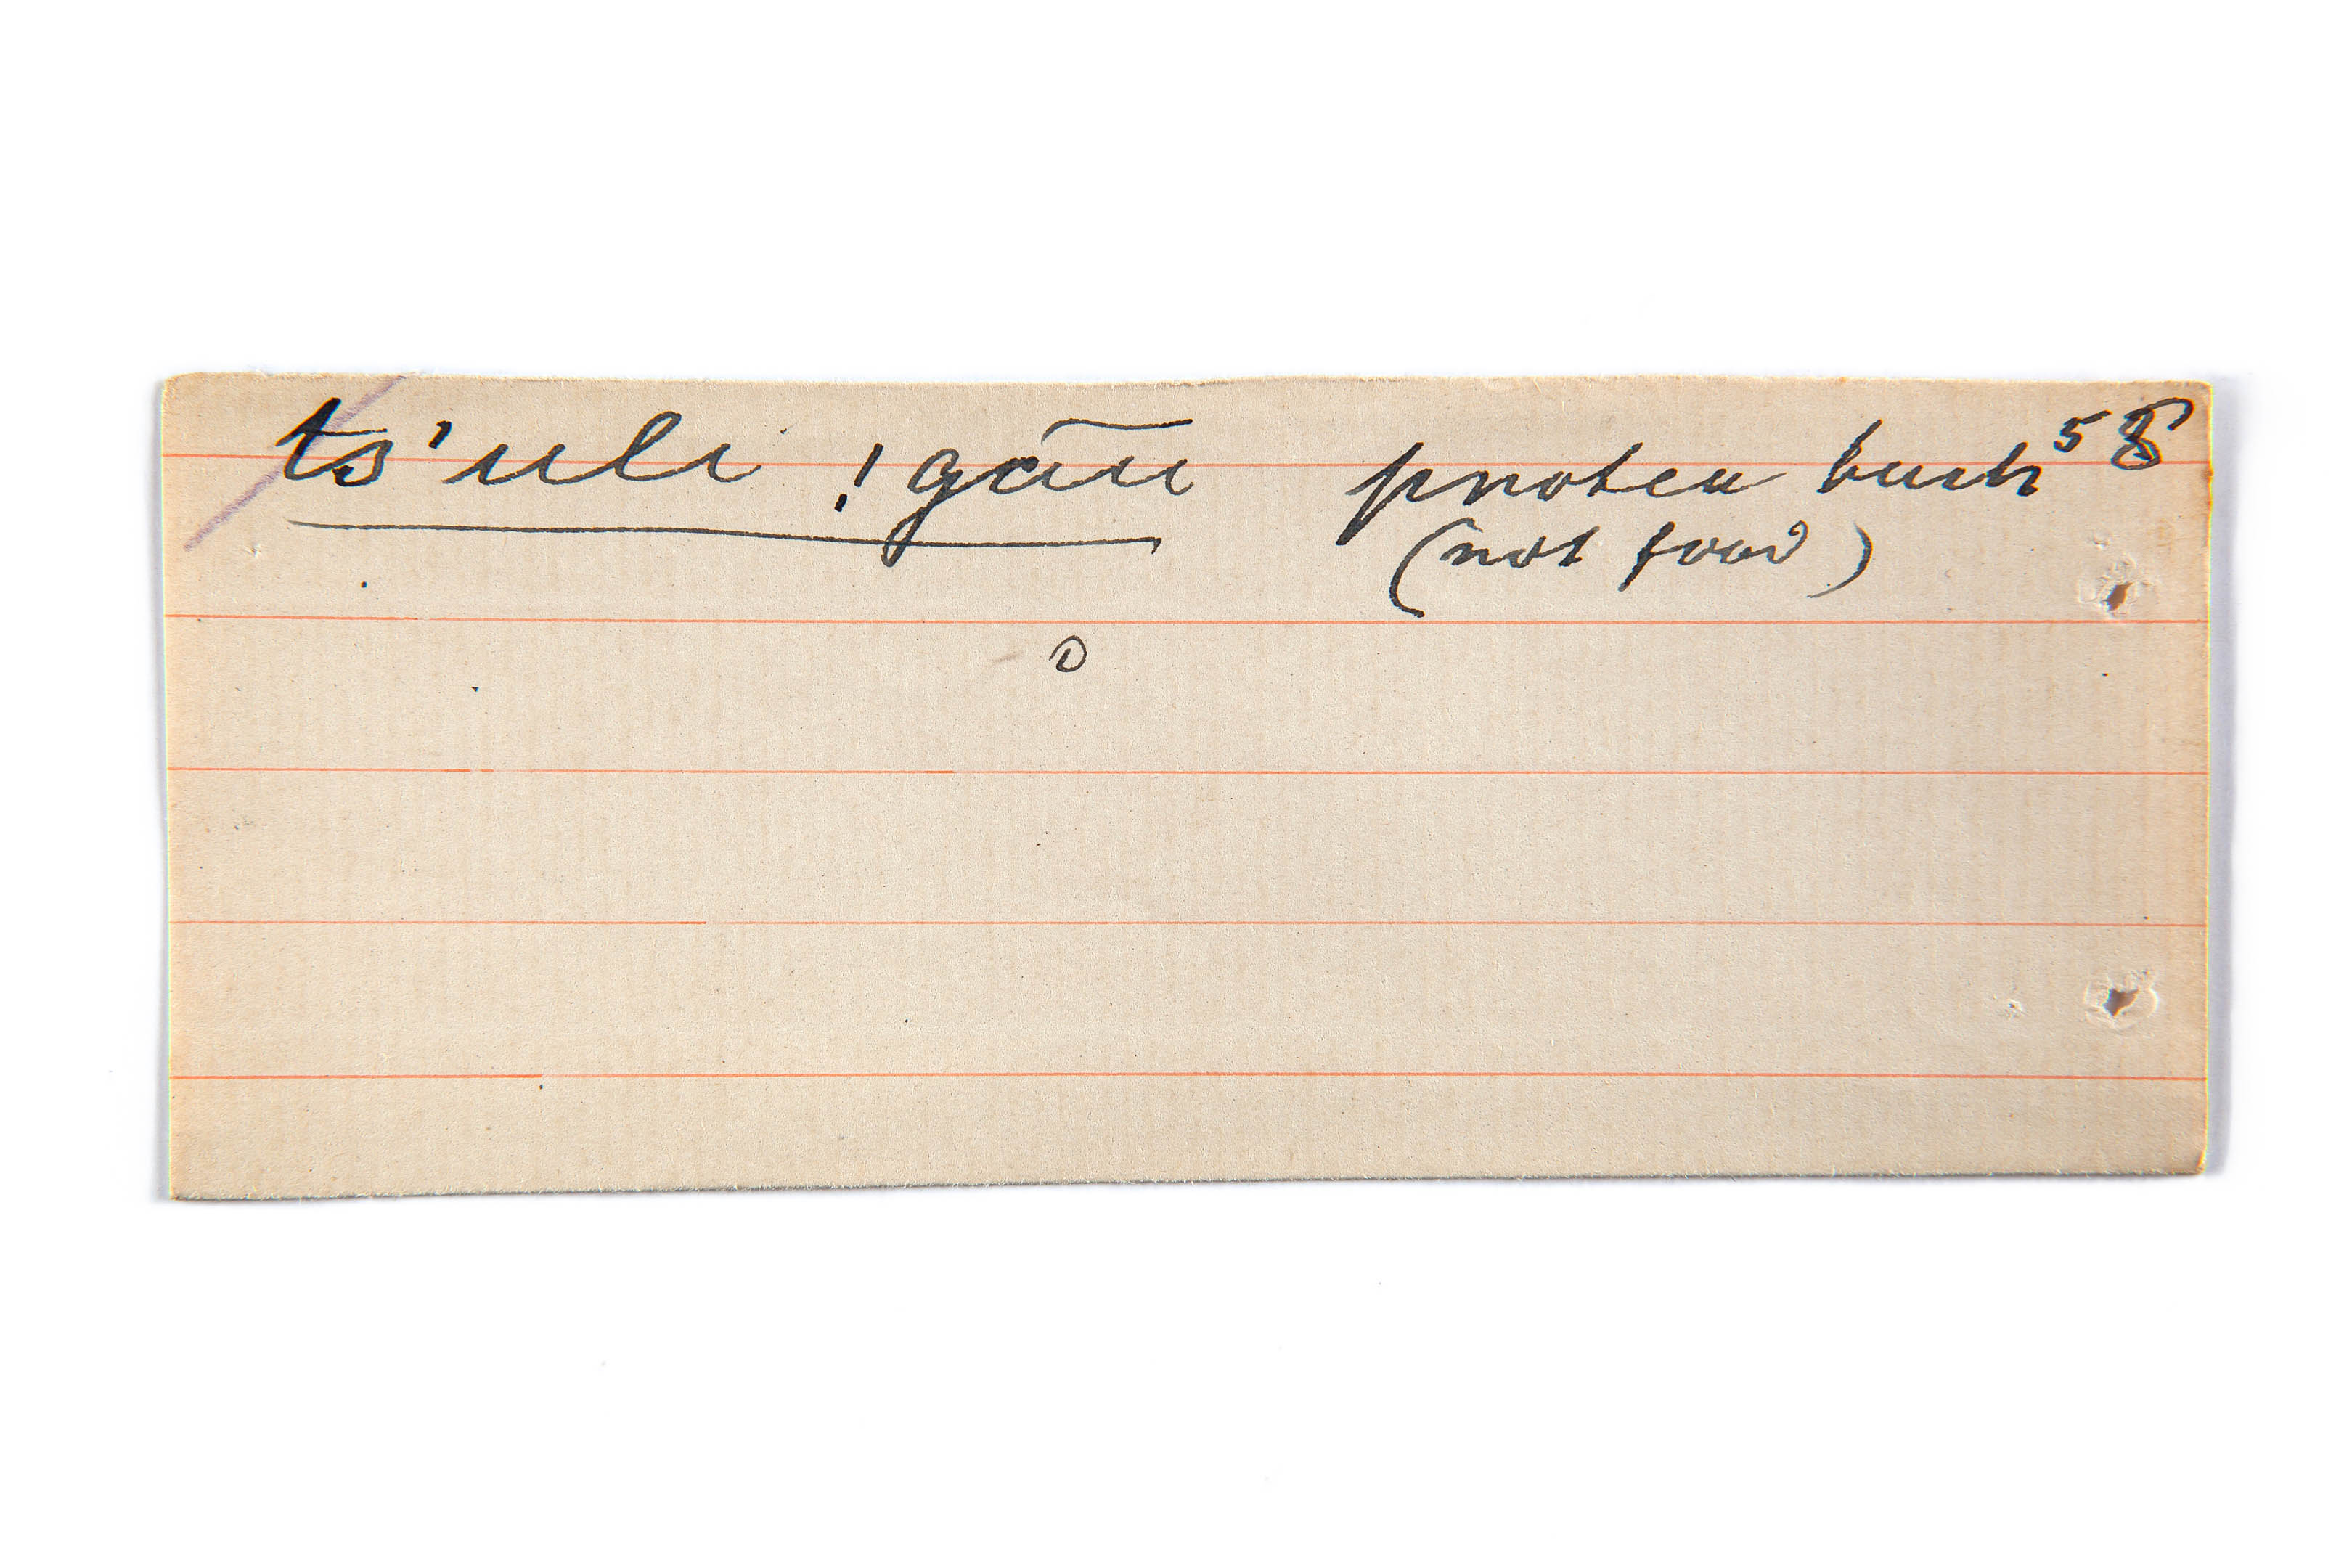 ts'uli !gāu protea bush 58
(not food)